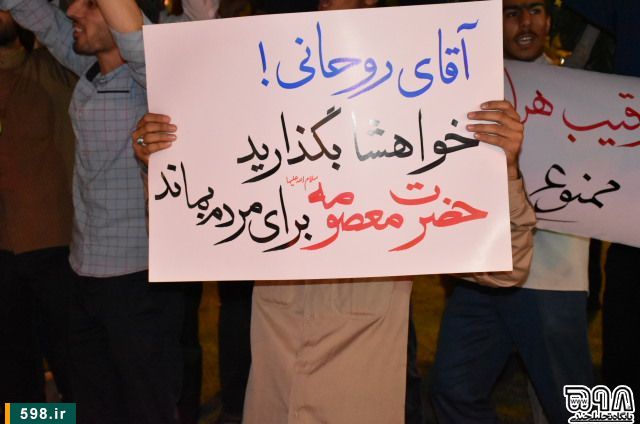 آقای روحانی !
خواهشا بگذارید
حضرت معصومه سلام الله علیها برای مردم بماند
قیب هرا
ممنوع
598.ir
۵۹۸